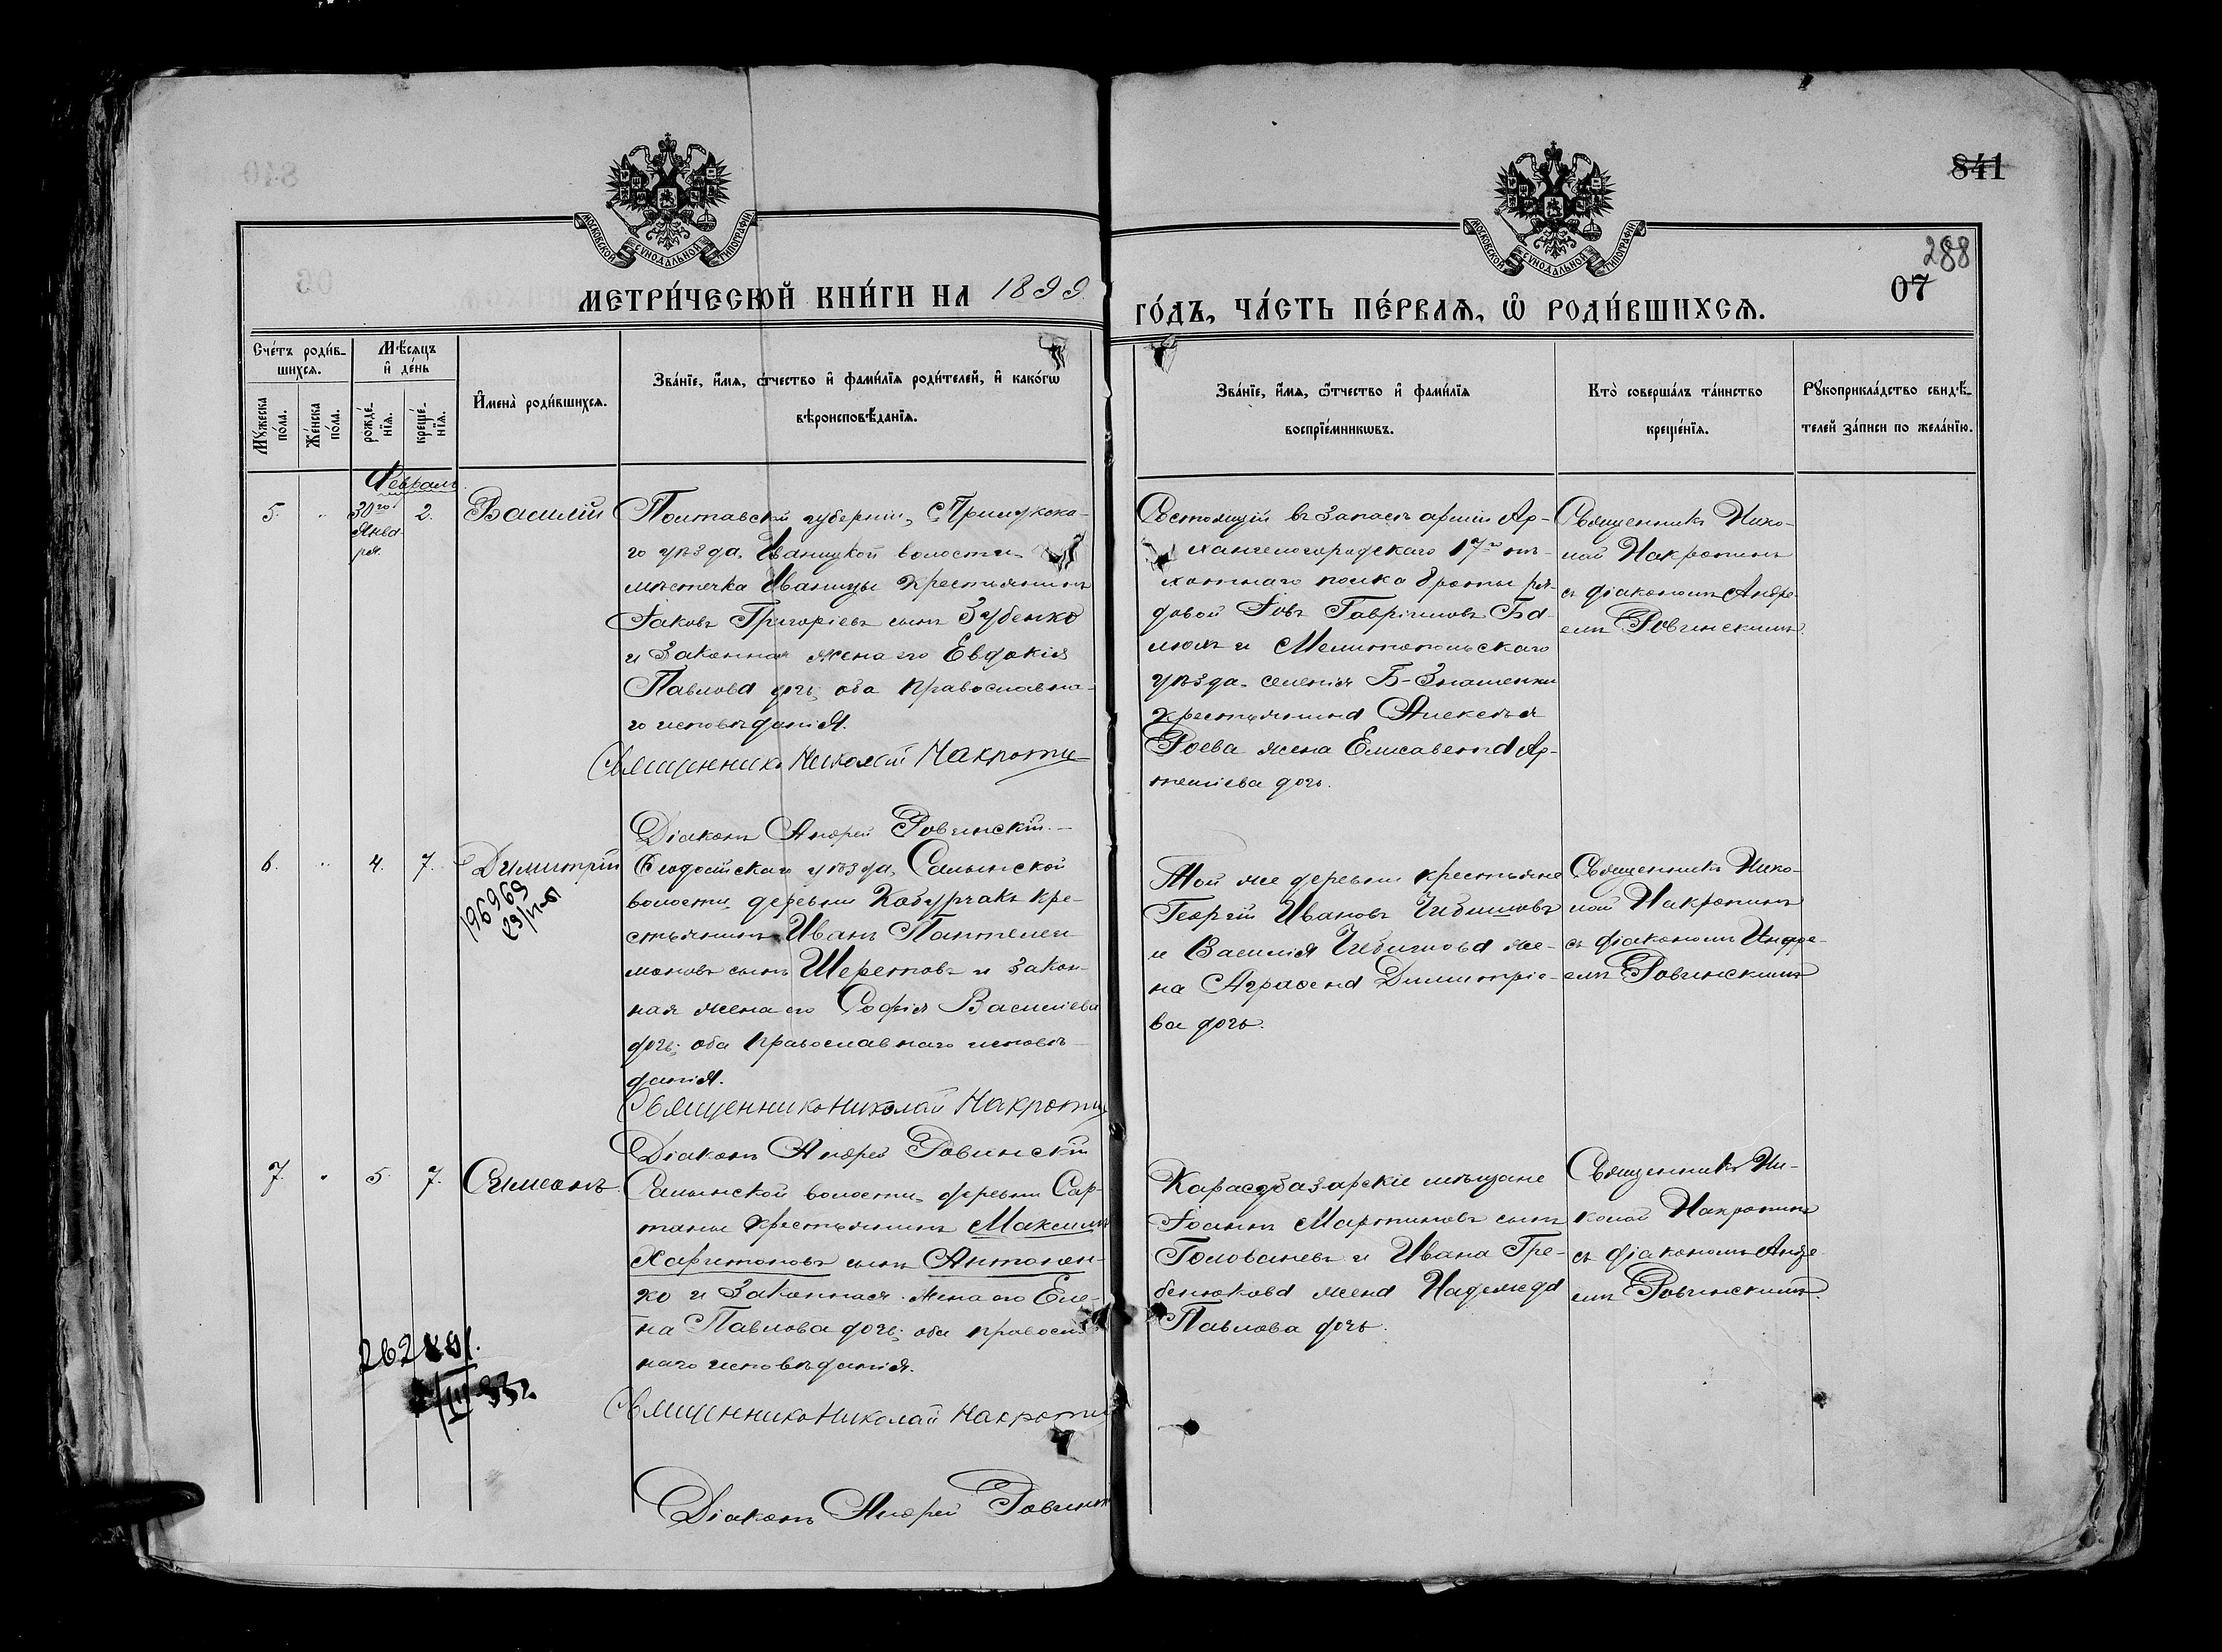 841
288
07
МОСКОВСКОЙ СУНОДАЛЬНОЙ ТИПОГРАФІИ
МОСКОВСКОЙ СУНОДАЛЬНОЙ ТИПОГРАФІИ
МЕТРИ́ЧЕСКОЙ КНИ́ГИ НА 1899
ГО́ДЪ, ЧА́СТЬ ПЕ́РВАѦ, Ѡ҆ РОДИ́ВШИХСѦ.
Сче́тъ роди́в-
шихсѧ.
Мѣ́сѧцъ
и҆ де́нь
Мꙋ́жеска
по́ла.
Же́нска
по́ла.
рожде́-
нїѧ.
креще́-
нїѧ.
И҆мена̀ роди́вшихсѧ.
Зва́нїе, и҆́мѧ, ѻ҆́тчество и҆ фами́лїѧ роди́телей, и҆ како́гѡ
вѣроисповѣ́данїѧ.
Зва́нїе, и҆́мѧ, ѻ҆́тчество и҆ фами́лїѧ
воспрїе́мникѡвъ.
Кто̀ соверша́лъ та́инство
креще́нїѧ.
Рꙋкоприкла́дство свидѣ́-
телей за́писи по жела́нїю.
Февраль.
5. " 30го 2. Василій
Янва-
ря.
Полтавской губерніи, Прилукска-
го уѣзда, Иваницкой волости
мѣстечка Иваницы крестьянинъ
Іаковъ Григоріевъ сынъ Зубенко
и законная жена его Евдокія
Павлова дочь; оба православна-
го исповѣданія.
Священникъ Николай Накропи
Діаконъ Андрей Ровинскій.
Состоящій въ запасѣ арміи Ар-
хангелогородскаго 17го пѣ-
хотнаго полка 8 роты ря-
довой Іовъ Гавріиловъ
и Мелитопольскаго
уѣзда селенія Б-Знаменки
крестьянина Алексѣя
Роева жена Елисавета Ар-
темiева дочь.
Священникъ Нико-
лай Накропинъ
съ діакономъ Андре-
емъ Ровинскимъ.
6. " 4. 7. Димитрій
196969
Ѳеодосійскаго уѣзда, Салынской
волости деревни Кабурчакъ кре-
стьянинъ Иванъ Пантелеи-
моновъ сынъ Шереметовъ и закон-
ная жена его Софія Василіева
дочь; оба православнаго исповѣ-
данія.
Священникъ Николай Накропи
Діаконъ Андрей Ровинскій
Той же деревни крестьяне
Георгій Ивановъ Чибишовъ
и Василія Чибишова же-
на Аграфена Димитріе-
ва дочь.
Священникъ Нико-
лай Накропинъ
съ діакономъ Андре-
емъ Ровинскимъ
7. " 5. 7. Симеонъ
262891.
III 33г
Салынской волости деревни Сар-
таны крестьянинъ Максимъ
Харитоновъ сынъ Антонен-
ко и законная жена его Еле-
на Павлова дочь; оба правосл
наго исповѣданія.
Священникъ Николай Накропи
Діаконъ Андрей Ровинск
Карасубазарскіе мѣщане
Іоаннъ Мартиновъ сынъ
Голованевъ и Ивана Гре-
бенюкова жена Надежда
Павлова дочь.
Священникъ Ни-
колай Накропинъ
съ діакономъ Андре-
емъ Ровинскимъ.